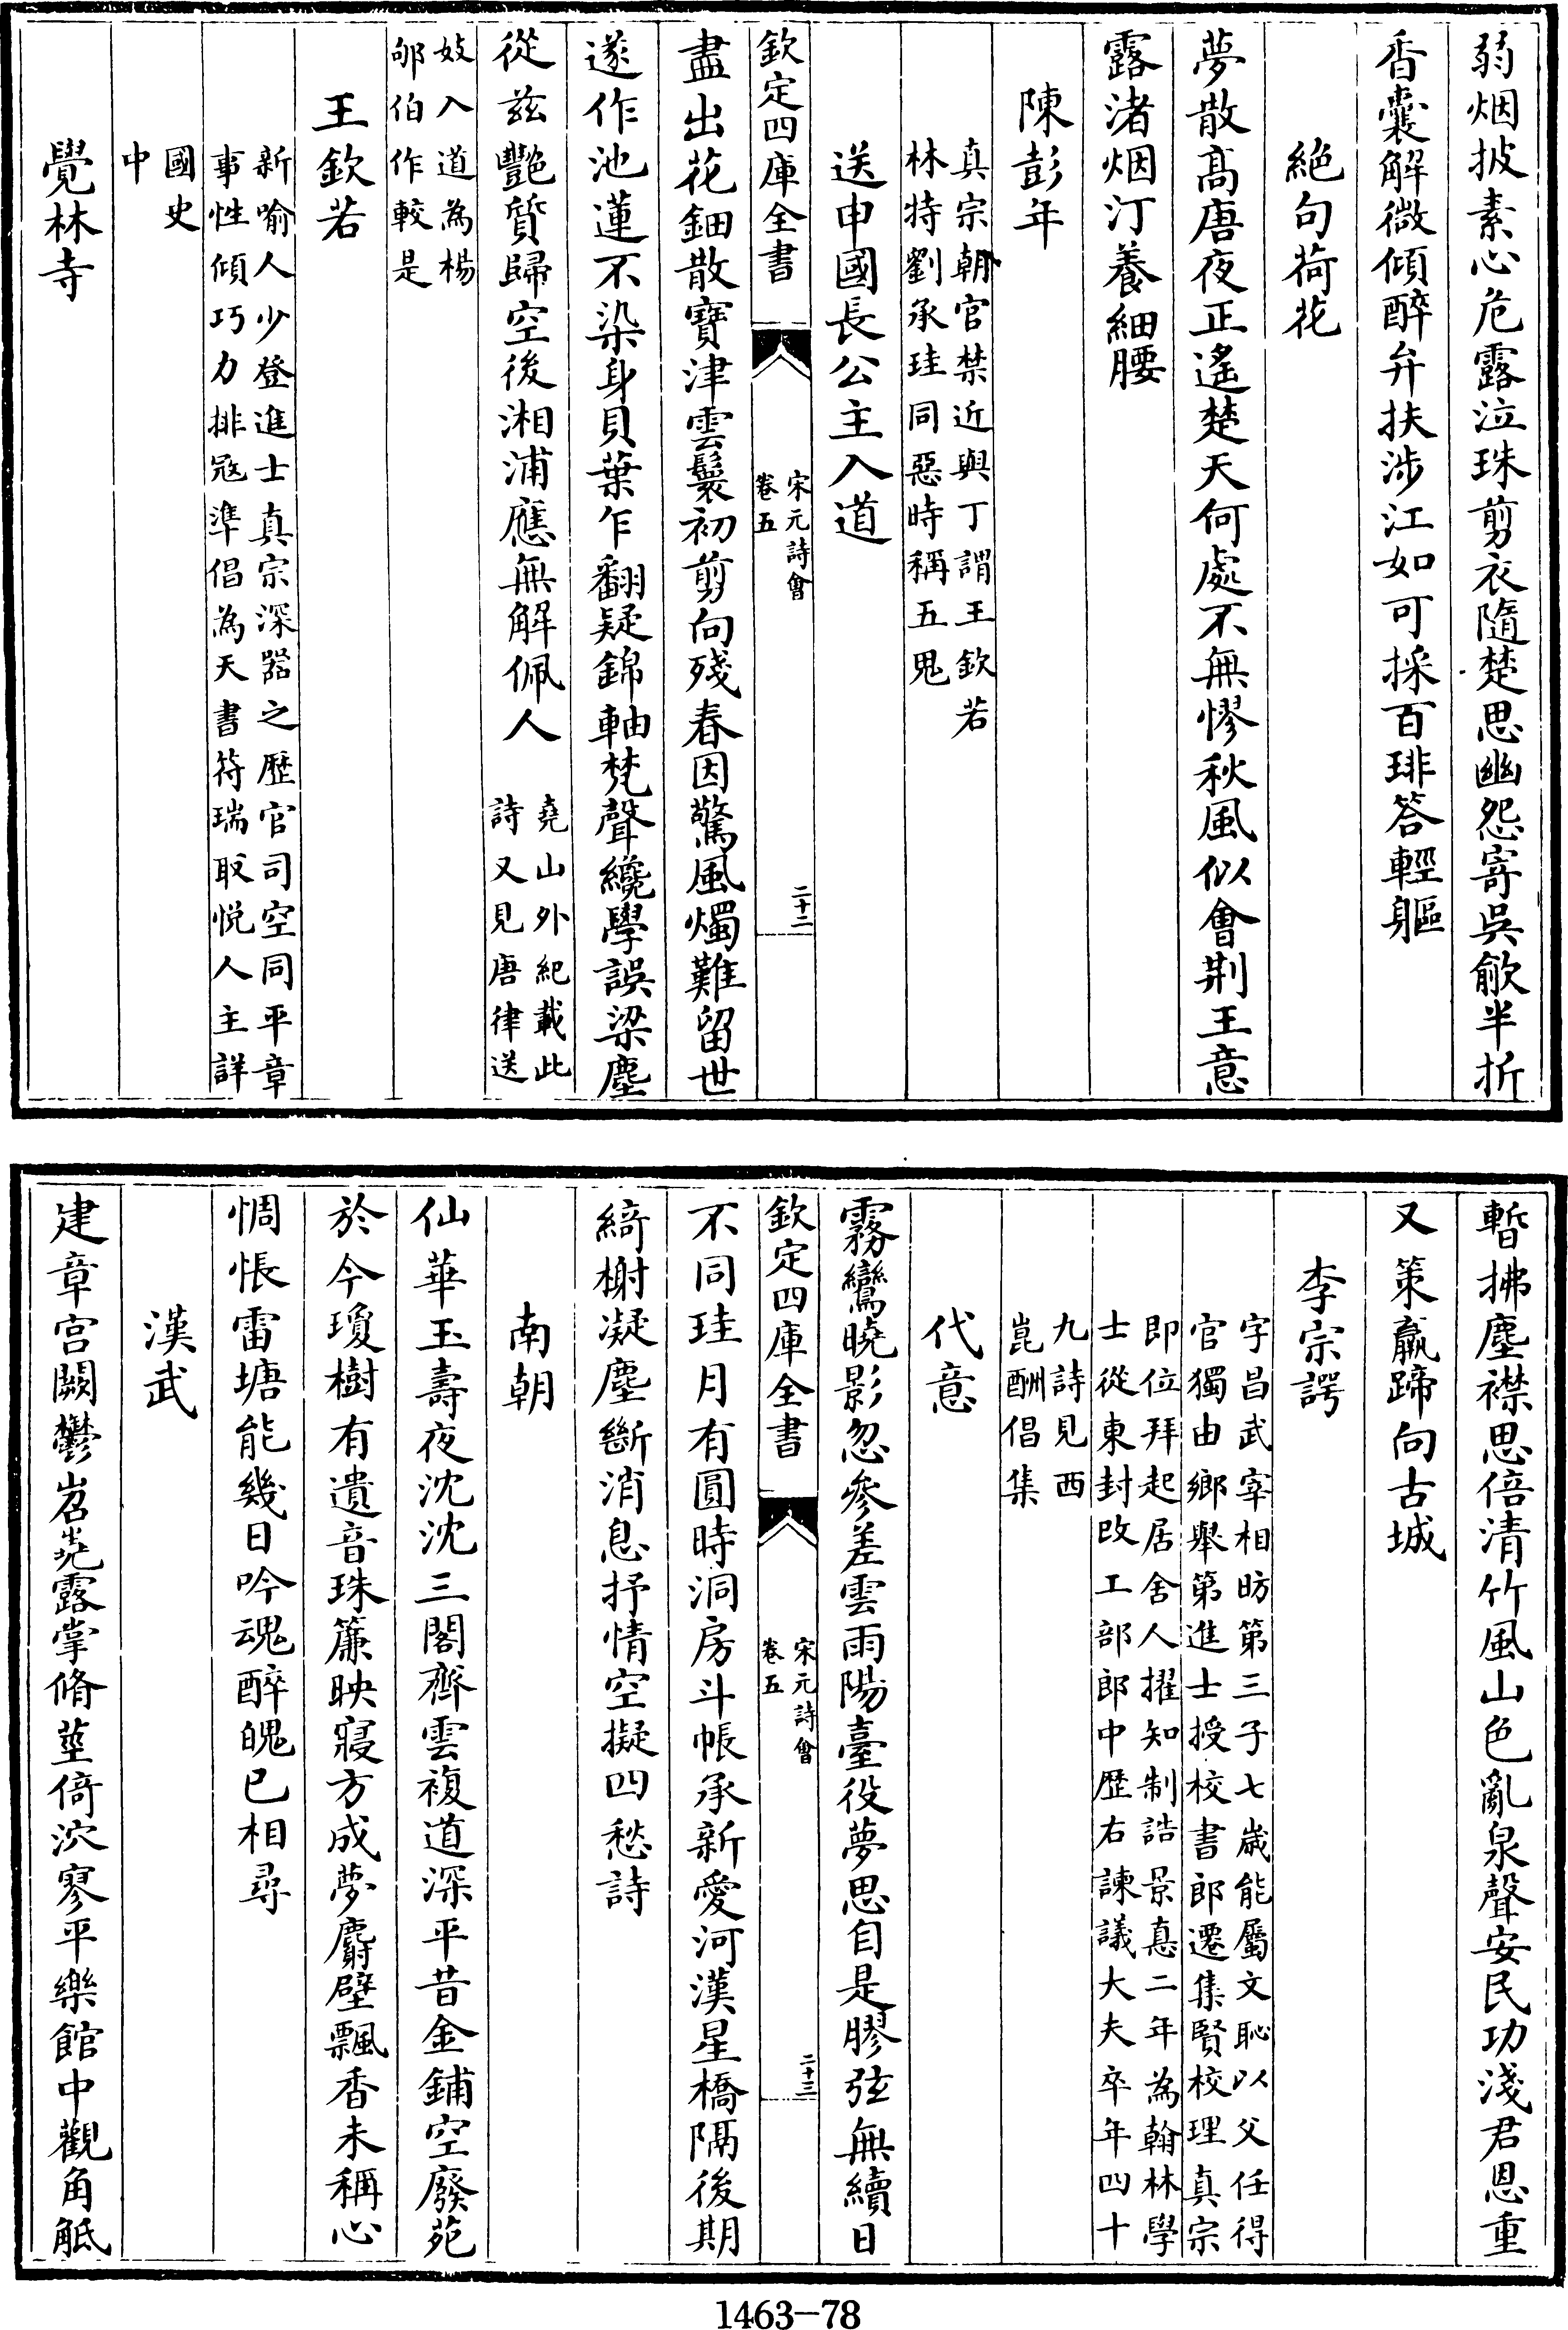 弱烟披素心危露泣珠剪衣隨楚思幽怨寄吳歈半折
香囊解微傾醉弁扶涉江如可採百琲答輕軀
絕句荷花
夢散髙唐夜正遙楚天何處不無憀秋風似會荆王意
露渚烟汀養細腰
陳彭年
真宗朝官禁近與丁謂王欽若
林特劉承珪同惡時稱五鬼
送申國長公主入道
欽定四庫全書
宋元詩會
卷五
二十二
盡出花鈿散寶津雲鬟初剪向殘春因驚風燭難留世
遂作池蓮不染身貝葉乍翻疑錦軸梵聲纔學誤梁塵
從兹艷質歸空後湘浦應無解佩人
堯山外紀載此
詩又見唐律送
妓入道為楊
郇伯作較是
王欽若
新喻人少登進士真宗深器之歴官司空同平章
事性傾巧力排冦準倡為天書符瑞取悅人主詳
國史
中
覺林寺
暫拂塵襟思倍清竹風山色亂泉聲安民功淺君恩重
又策羸蹄向古城
李宗諤
字昌武宰相昉第三子七歲能屬文恥以父任得
官獨由鄉舉第進士授校書郎遷集賢校理真宗
即位拜起居舍人擢知制誥景悳二年為翰林學
士從東封改工部郎中歴右諫議大夫卒年四十
九詩見西
崑酬倡集
代意
霧鸞曉影忽參差雲雨陽臺役夢思自是膠弦無續日
欽定四庫全書
宋元詩會
卷五
二十三
不同珪月有圓時洞房斗帳承新愛河漢星橋隔後期
綺榭凝塵斷消息抒情空擬四愁詩
南朝
仙華玉壽夜沈沈三閣齊雲複道深平昔金鋪空廢苑
於今瓊樹有遺音珠簾映寢方成夢麝壁飄香未稱心
惆悵雷塘能幾日吟魂醉魄已相尋
漢武
建章宫闕鬱岧嶤露掌脩莖倚泬寥平樂館中觀角觝
1463—78